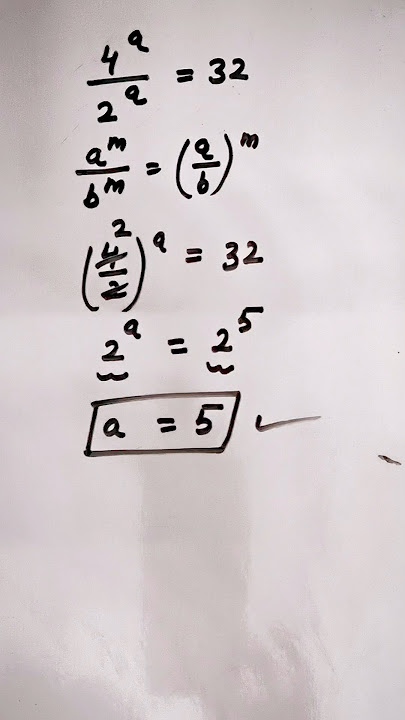 4^a / 2^a = 32
a^m / b^m = (a/b)^m
(4̶ ² / 2̶)^a = 32
2^a = 2^5
a = 5 ✓